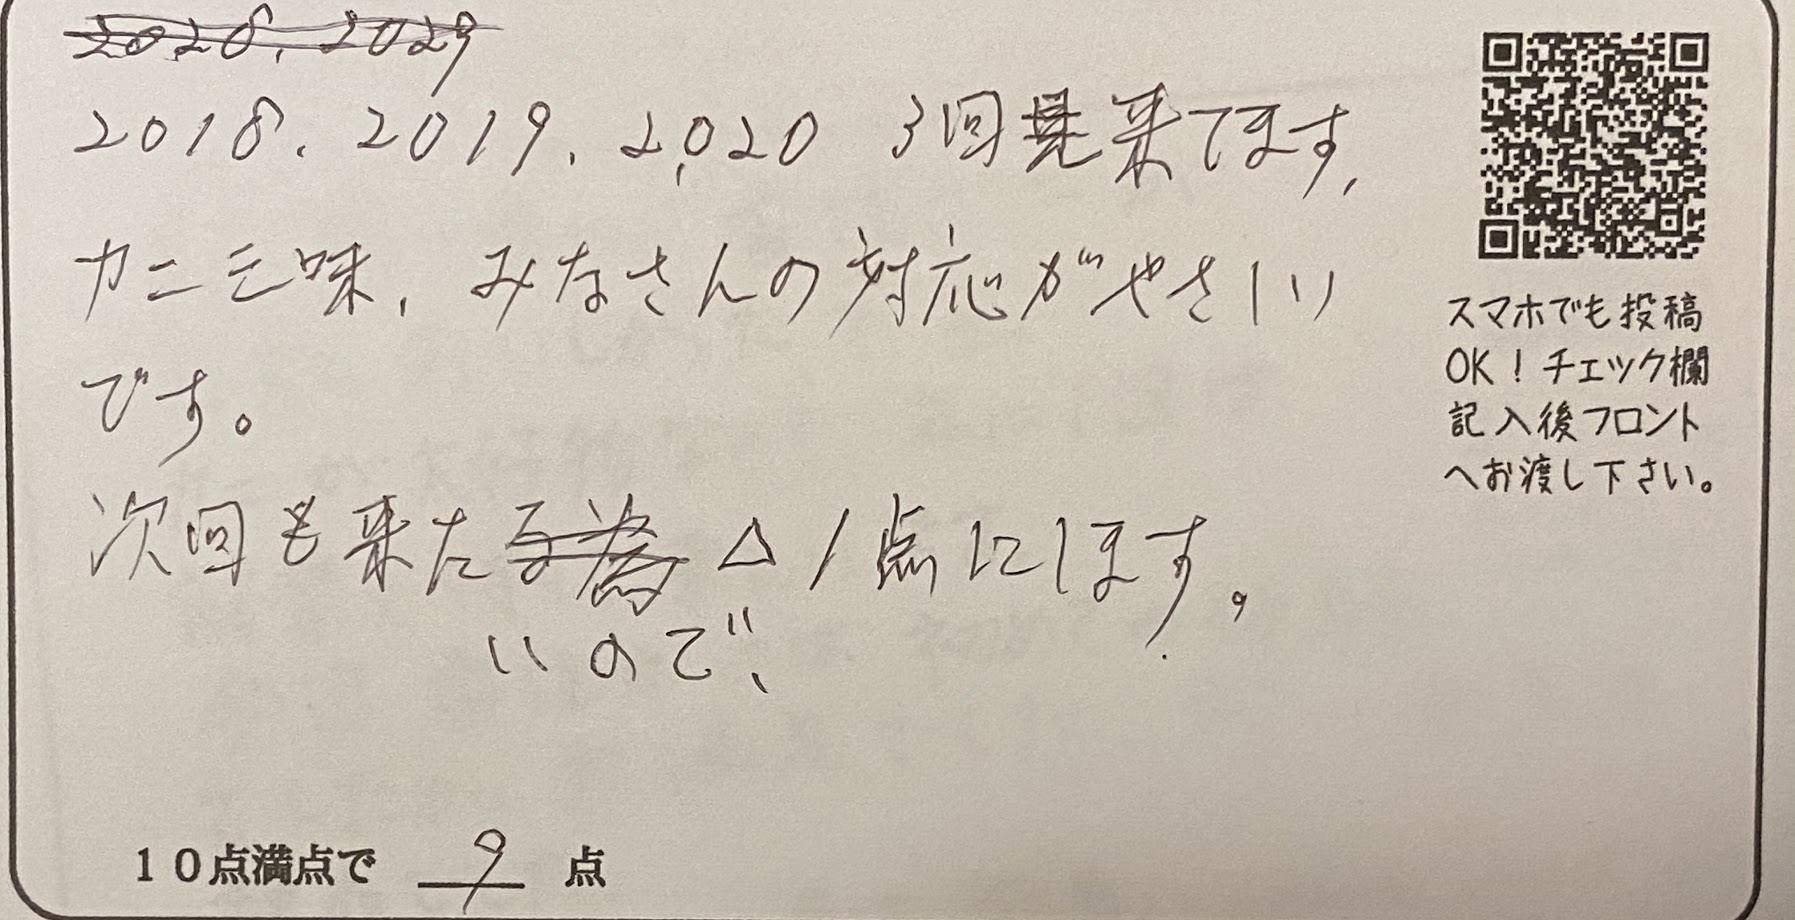 2028、2029
2018、2019、2020 3回見来てます、
カニモ味、みなさんの対応がやさしい
です。
次回も来たる為 △1点にします。
いので、
10点満点で 9 点
スマホでも投稿
OK！チェック欄
記入後フロント
へお渡し下さい。